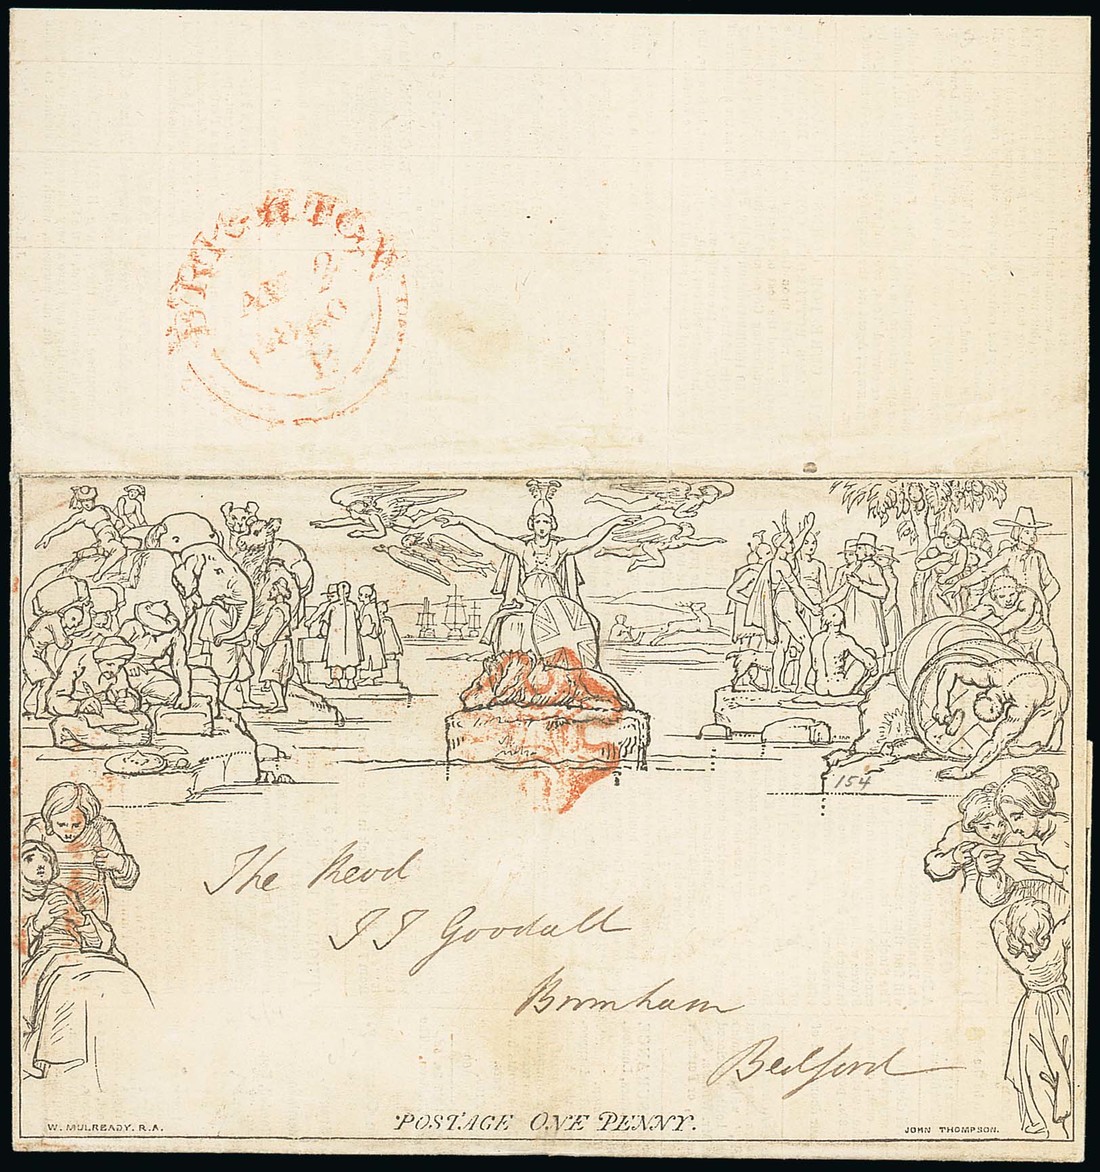 BRIGHTON
The Revd
J J Goodall
Bromham
Bedford
154
POSTAGE ONE PENNY.
W. MULREADY. R.A.
JOHN THOMPSON.